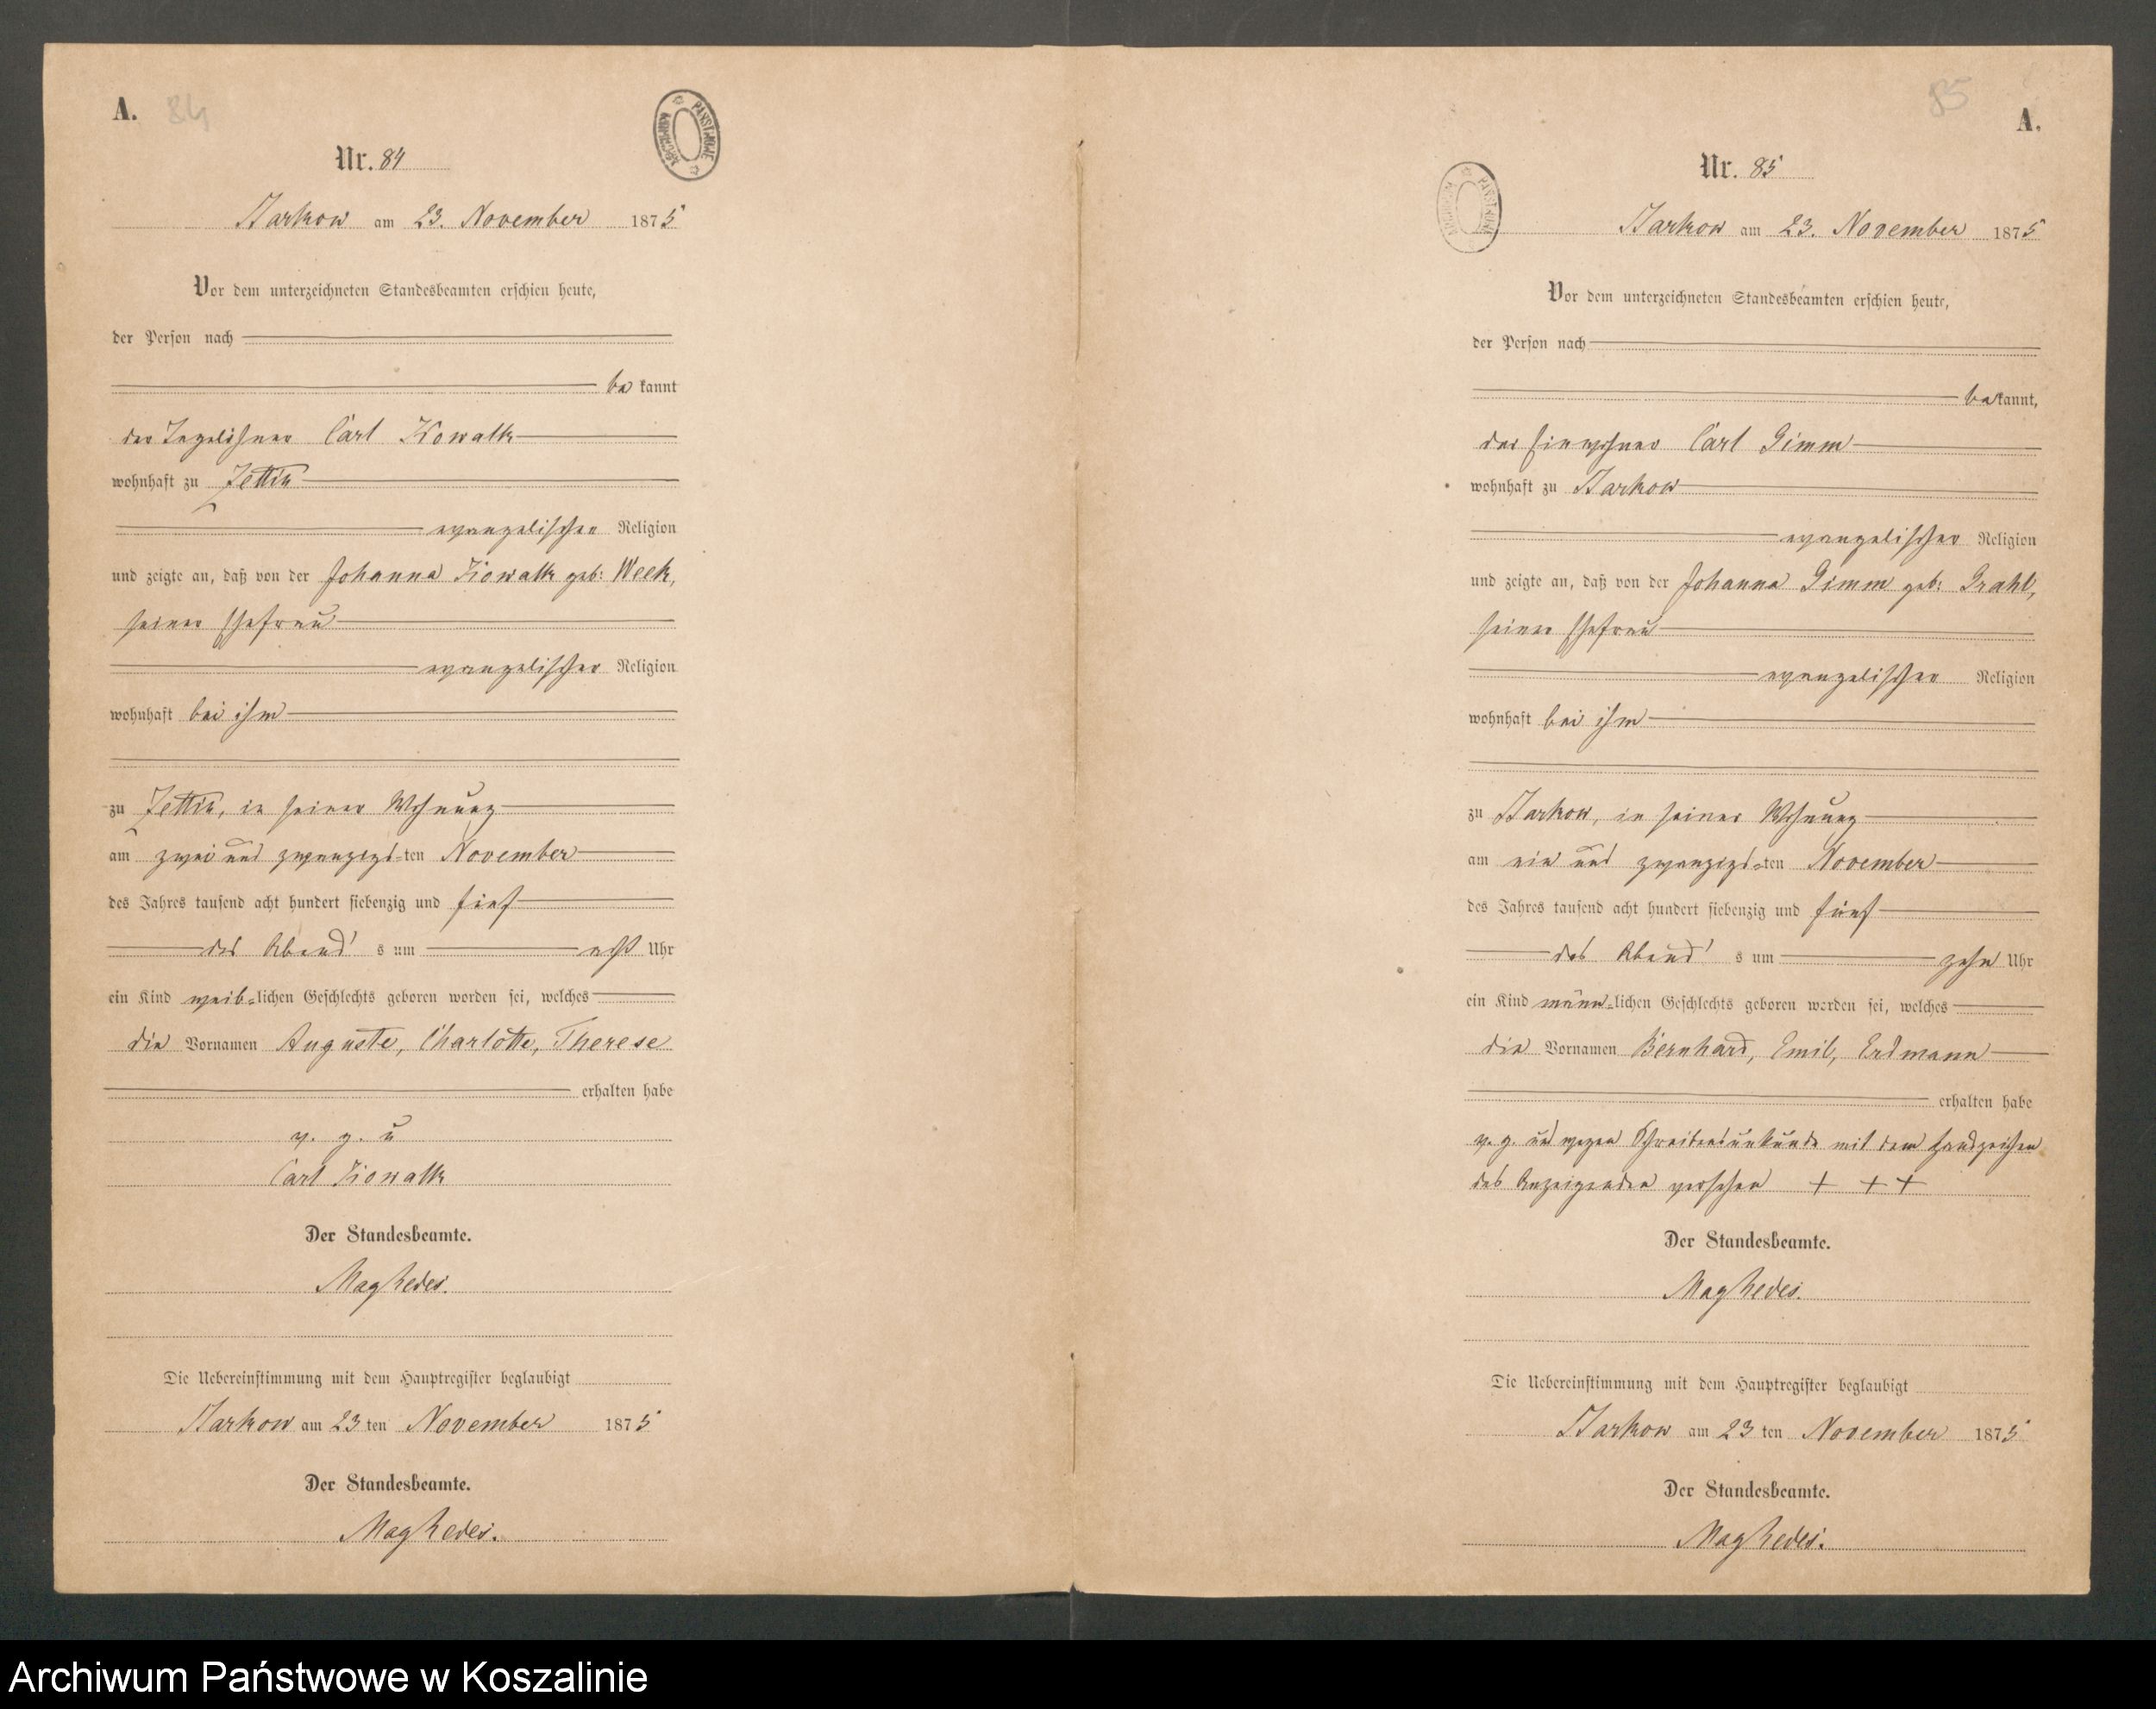 A. 84
ARCHIWUM PAŃSTWOWE
Nr. 84
Starkow am 23. November 1875
Vor dem unterzeichneten Standesbeamten erschien heute,
der Person nach
be kannt
der Tagelöhner Carl Kowalk
wohnhaft zu Zettin
evangelischer Religion
und zeigte an, daß von der Johanna Kowalk geb: Week,
seiner Ehefrau
evangelischer Religion
wohnhaft bei ihm
zu Zettin, in seiner Wohnung
am zwei und zwanzigst=ten November
des Jahres tausend acht hundert siebenzig und fünf
des Abend s um acht Uhr
ein Kind weib=lichen Geschlechts geboren worden sei, welches
die Vornamen Auguste, Charlotte, Therese
erhalten habe
v. g. u
Carl Kowalk
Der Standesbeamte.
Die Uebereinstimmung mit dem Hauptregister beglaubigt
Starkow am 23 ten November 1875
Der Standesbeamte.
85
A.
ARCHIWUM PAŃSTWOWE
Nr. 85
Starkow am 23. November 1875
Vor dem unterzeichneten Standesbeamten erschien heute,
der Person nach
bekannt,
der Einwohner Carl Gimm
wohnhaft zu Starkow
evangelischer Religion
und zeigte an, daß von der Johanna Gimm geb: Grahl,
seiner Ehefrau
evangelischer Religion
wohnhaft bei ihm
zu Starkow, in seiner Wohnung
am ein und zwanzigst=ten November
des Jahres tausend acht hundert siebenzig und fünf
des Abend s um zehn Uhr
ein Kind männ=lichen Geschlechts geboren worden sei, welches
die Vornamen Bernhard, Emil, Erdmann
erhalten habe
v. g. und wegen Schreibensunkunde mit dem Handzeichen
des Anzeigenden versehen + + +
Der Standesbeamte.
Die Uebereinstimmung mit dem Hauptregister beglaubigt
Starkow am 23 ten November 1875
Der Standesbeamte.
Archiwum Państwowe w Koszalinie